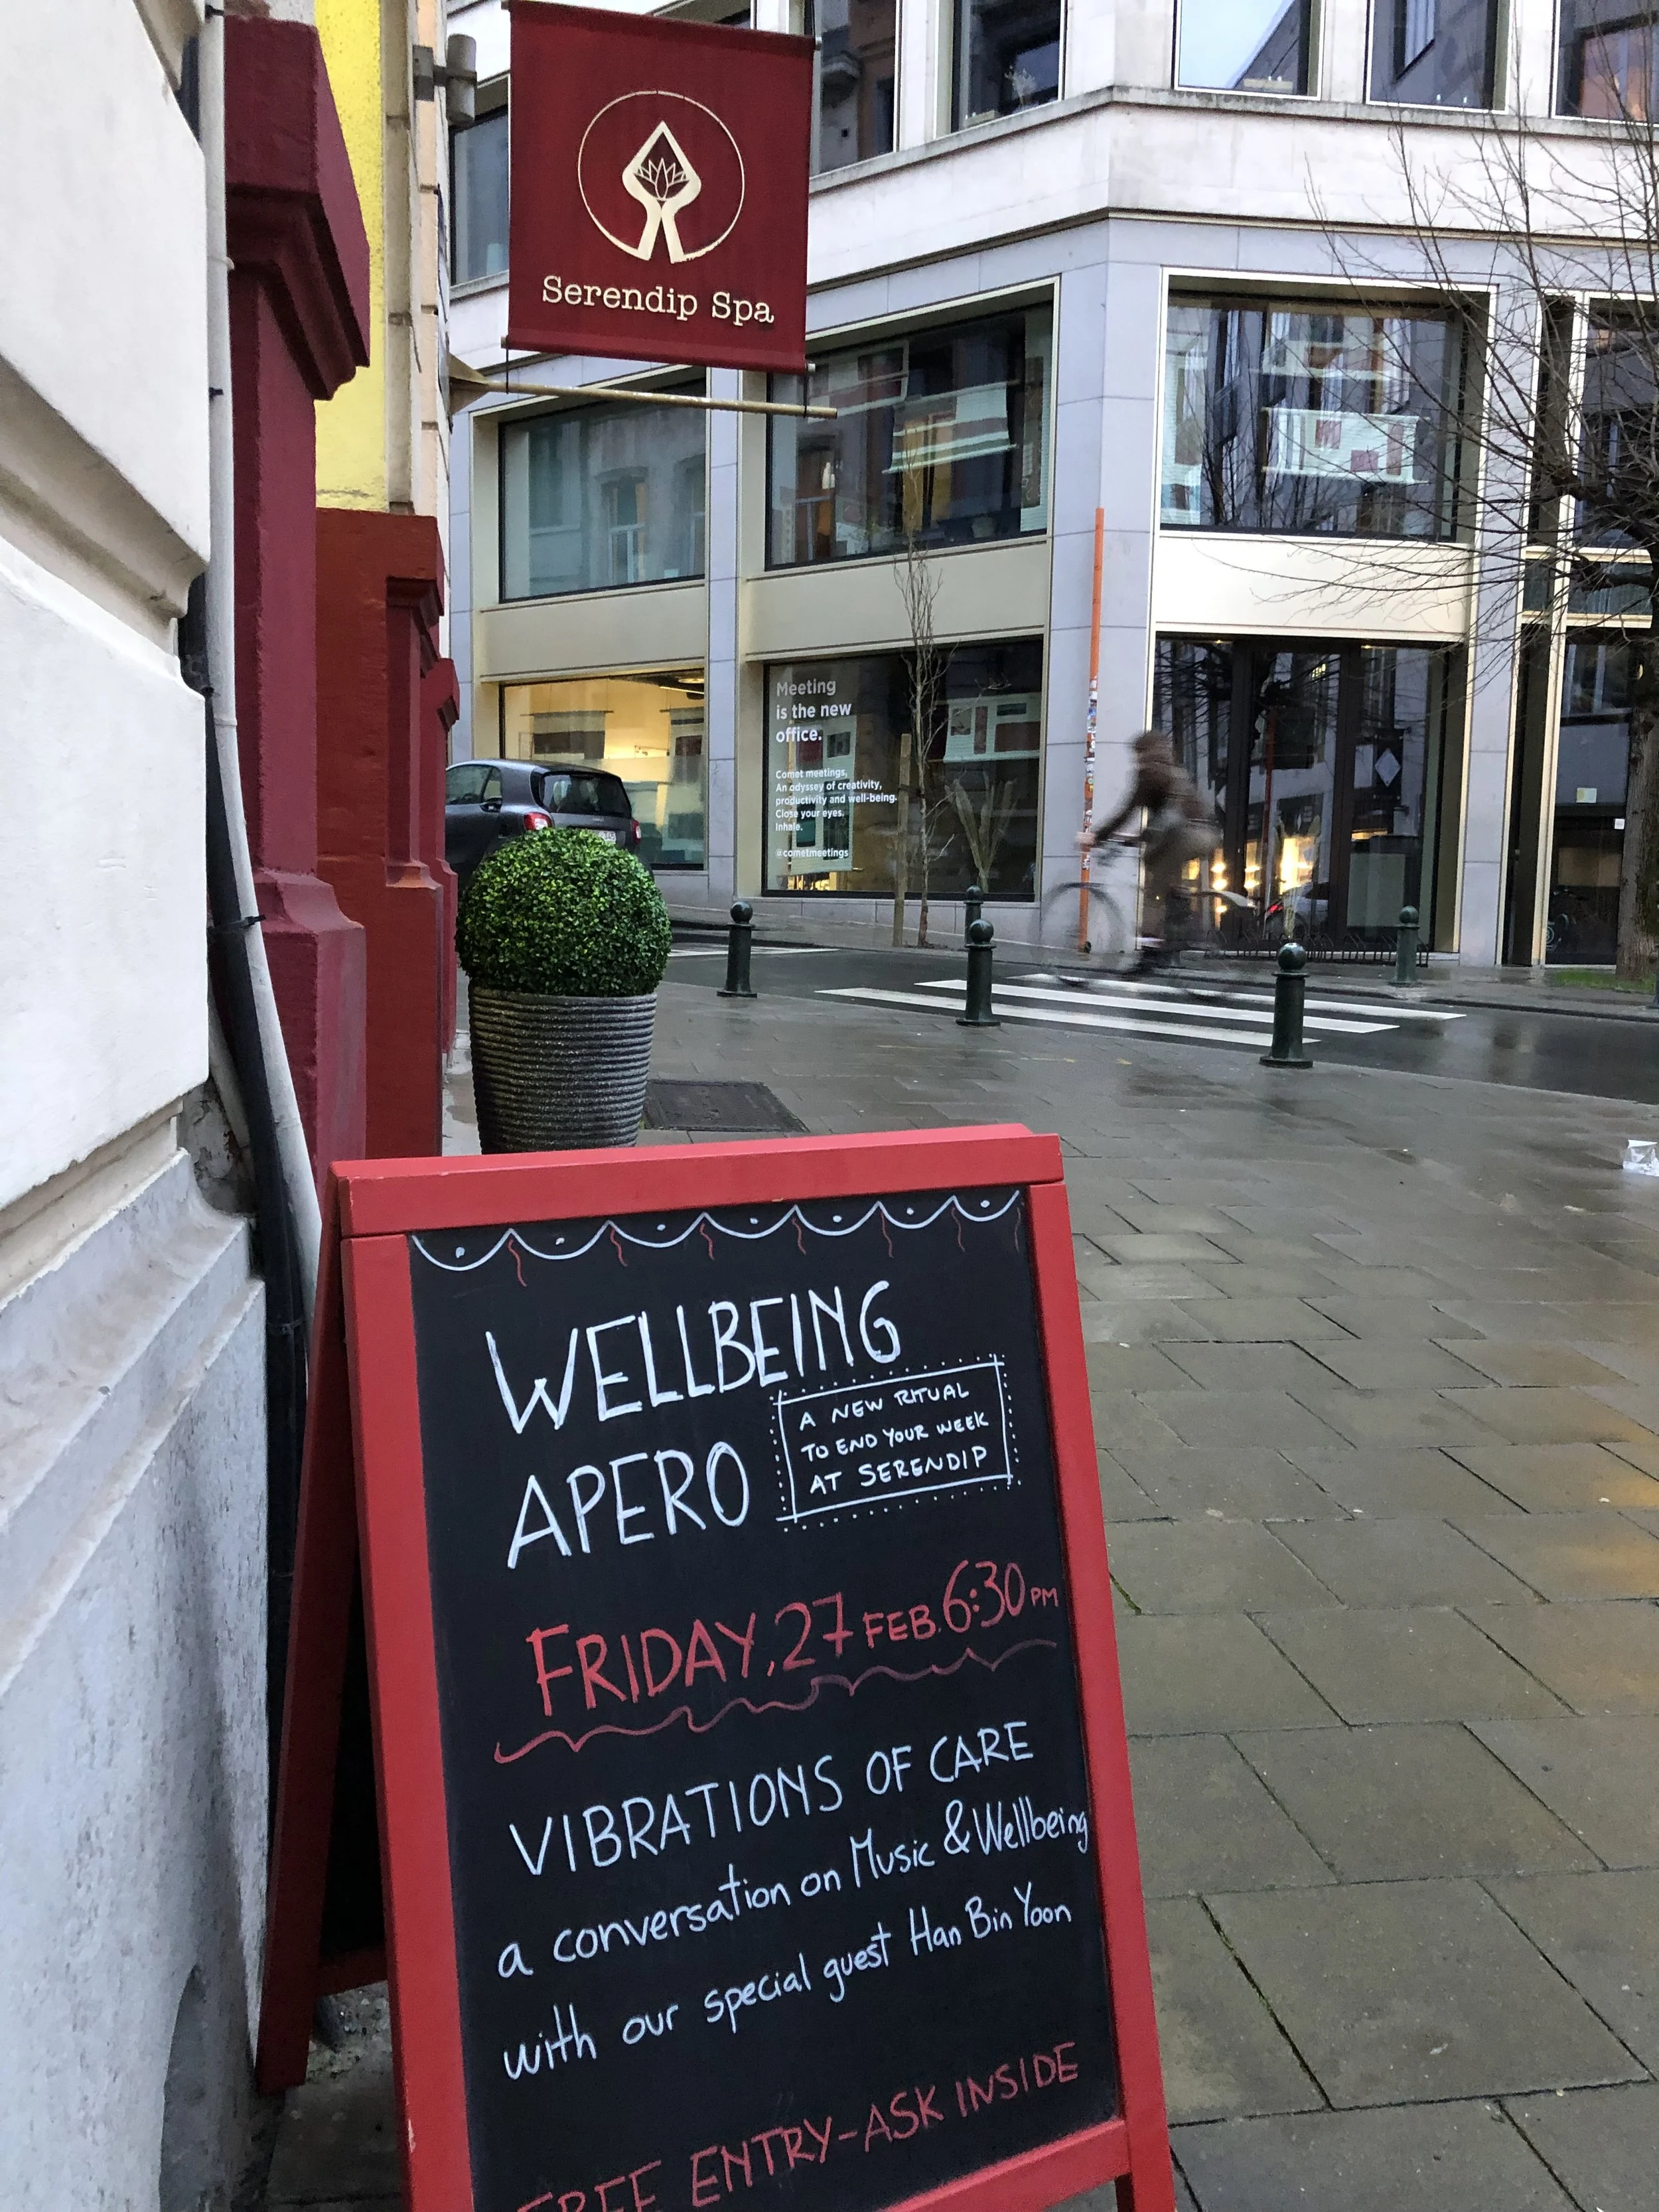 Serendip Spa
Meeting
is the new
office.
Comet meetings,
An odyssey of creativity,
productivity and well-being.
Close your eyes.
Inhale.
@cometmeetings
WELLBEING
APERO
A NEW RITUAL
TO END YOUR WEEK
AT SERENDIP
FRIDAY, 27 FEB. 6:30 PM
VIBRATIONS OF CARE
a conversation on Music & Wellbeing
with our special guest Han Bin Yoon
FREE ENTRY-ASK INSIDE